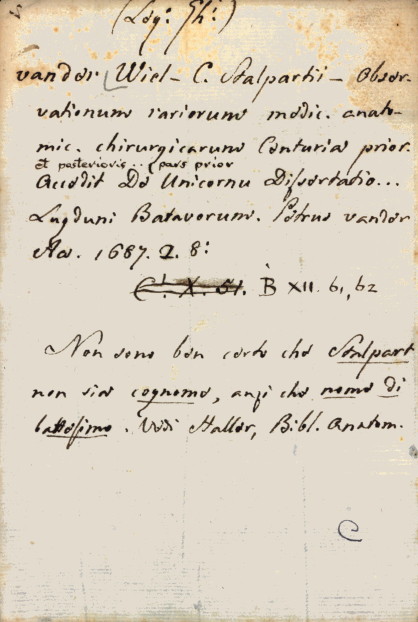 (Leg: Gh:)
vander Wiel - C. Stalpartii - Obser-
vationum rariorum medic. anato-
mic. chirurgicarum Centuria prior.
et posterioris .. (pars prior
Accedit De Unicornu Dissertatio...
Lugduni Batavorum. Petrus vander
Aa. 1687. 2. 8:
C! X. 51. B XII. 61, 62
Non sono ben certo che Stalpart
non sia cognome, anzi che nome di
battesimo. Vedi Haller, Bibl. Anatom.
C